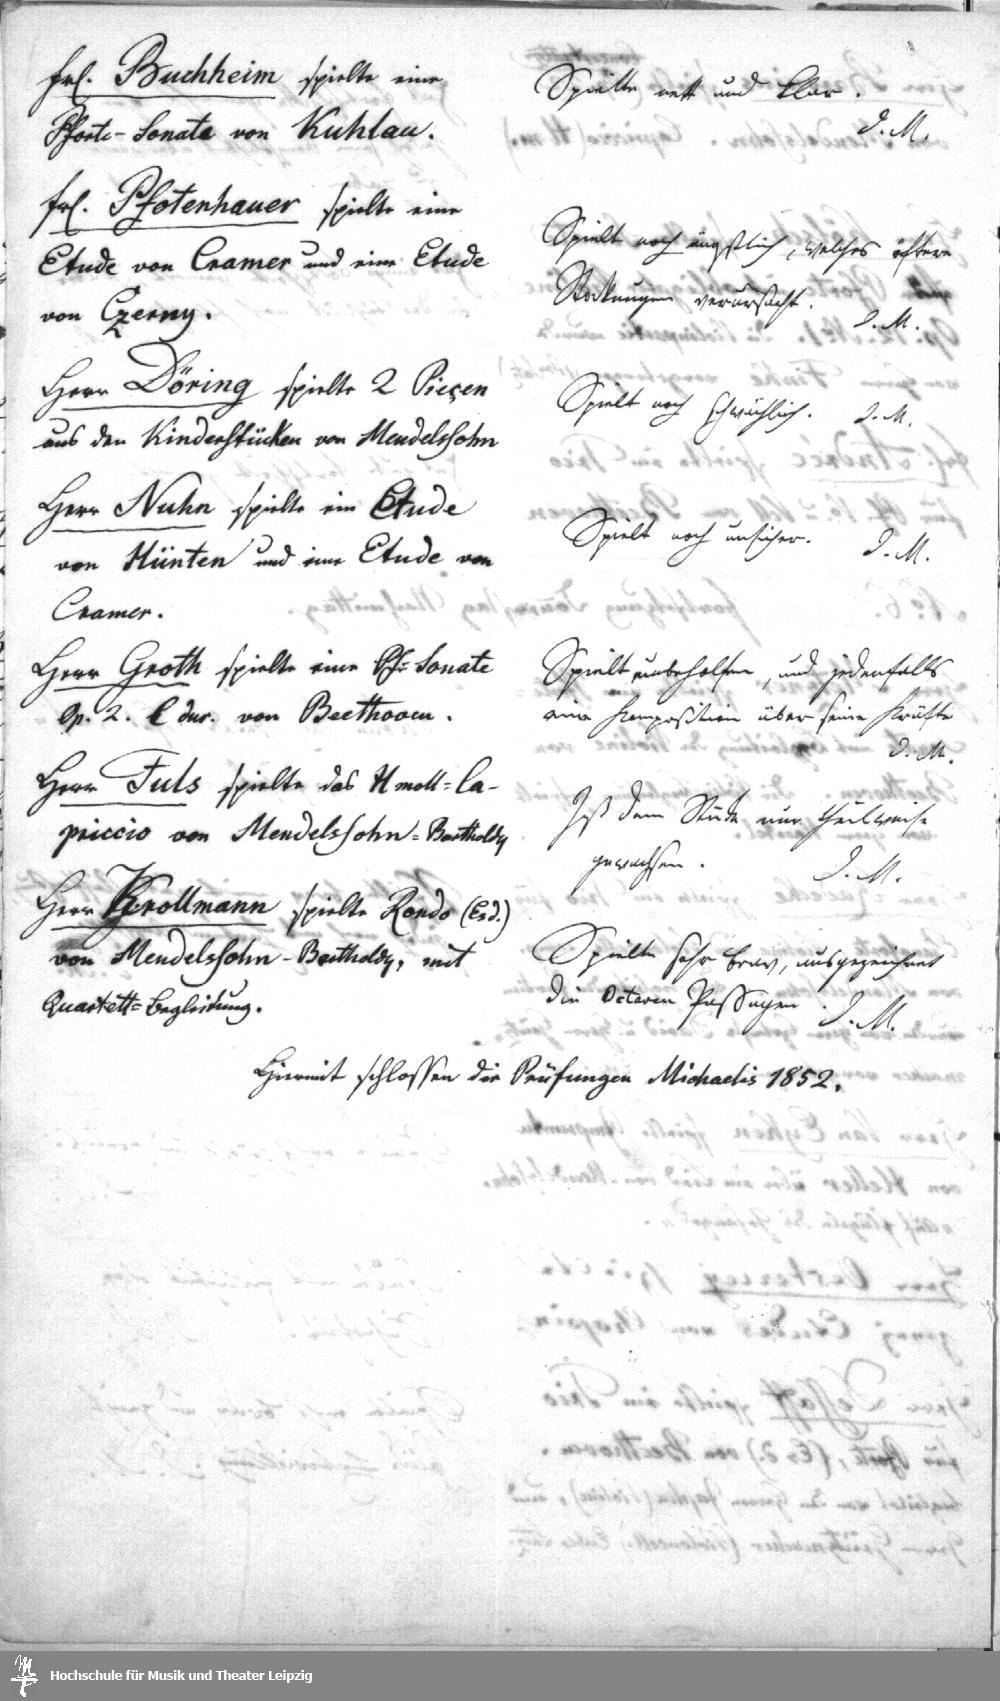 Frl. Buchheim spielte eine
Pforte-Sonate von Kuhlau.
Spielte nett und klar.
J. M.
Frl. Pfotenhauer spielte eine
Etude von Cramer und eine Etude
von Czerny.
Spielt noch ängstlich, welches öftere
Stockungen verursacht.
J. M.
Herr Döring spielte 2 Pieçen
aus den Kinderstücken von Mendelssohn
Spielt noch schwächlich. J. M.
Herr Nuhn spielte ein Etude
von Hünten und eine Etude von
Cramer.
Spielt noch unsicher. J. M.
Herr Groth spielte eine Pf-Sonate
Op. 2. C dur. von Beethoven.
Spielt unbeholfen, und jedenfalls
eine Komposition über seine Kräfte
J. M.
Herr Fuls spielte das H moll-Ca-
priccio von Mendelssohn-Bartholdy
Ist dem Stücke nur theilweise
gewachsen. J. M.
Herr Krollmann spielte Rondo (Esd.)
von Mendelssohn-Bartholdy, mit
Quartett-Begleitung.
Spielte sehr brav, ausgezeichnet
die Octaven Passagen. J. M.
Hiermit schlossen die Prüfungen Michaelis 1852.
Hochschule für Musik und Theater Leipzig